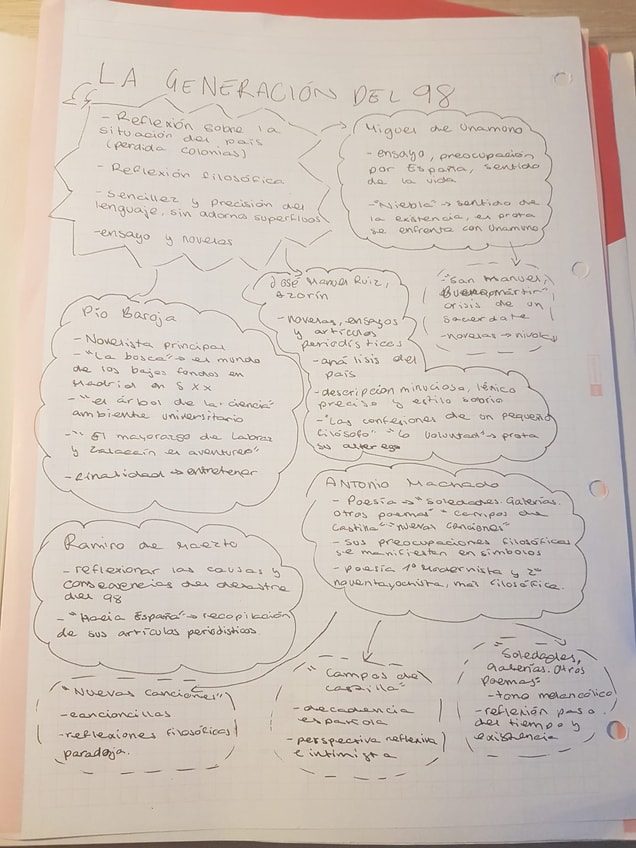 LA GENERACIÓN DEL 98
- Reflexión sobre la
situación del país
(perdida colonias)
- Reflexión filosófica
- sencillez y precisión del
lenguaje, sin adornos superfluos
- ensayo y novelas
Miguel de Unamuno
- ensayo, preocupación
por España, sentido
de la vida
- "Niebla" → sentido de
la existencia, el prota
se enfrenta con Unamuno
"San Manuel,
Bueno mártir"
crisis de un
sacerdote
- novelas → nivolas
José Manuel Ruiz,
Azorín
- novelas, ensayos
y artículos
periodísticos
- análisis del
país
- descripción minuciosa, léxico
preciso y estilo sobrio
- "Las confesiones de un pequeño
filósofo" "la voluntad" → prota
su alter ego
Pío Baroja
- Novelista principal
- "La busca" → el mundo
de los bajos fondos en
Madrid en S XX
- "el árbol de la ciencia"
ambiente universitario
- "El mayorazgo de Labraz
y Zalacaín el aventurero"
- finalidad → entretener
Antonio Machado
- Poesía → "Soledades. Galerías.
Otros poemas" "campos de
Castilla" "nuevas canciones"
- sus preocupaciones filosóficas
se manifiestan en símbolos
- poesía 1º Modernista y 2º
noventayochista, más filosófica.
Ramiro de Maeztu
- reflexionar las causas y
consecuencias del desastre
del 98
- "Hacia España" → recopilación
de sus artículos periodísticos
"Nuevas canciones"
- cancioncillas
- reflexiones filosóficas
paradoja.
"Campos de
castilla"
- decadencia
española
- perspectiva reflexiva
e intimista
"Soledades,
Galerías. Otros
Poemas"
- tono melancólico
- reflexión paso
del tiempo y
existencia